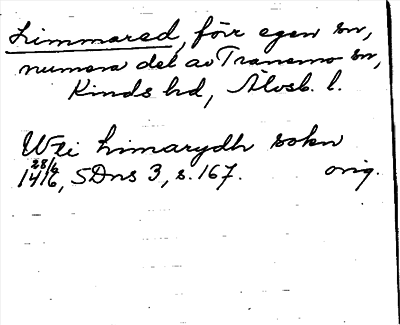 Limmared, förr egen sn,
numera del av Tranemo sn,
Kinds hd, Älvsb. l.
i Limarydh sokn
28/6
1416, SDns 3, s. 167. orig.